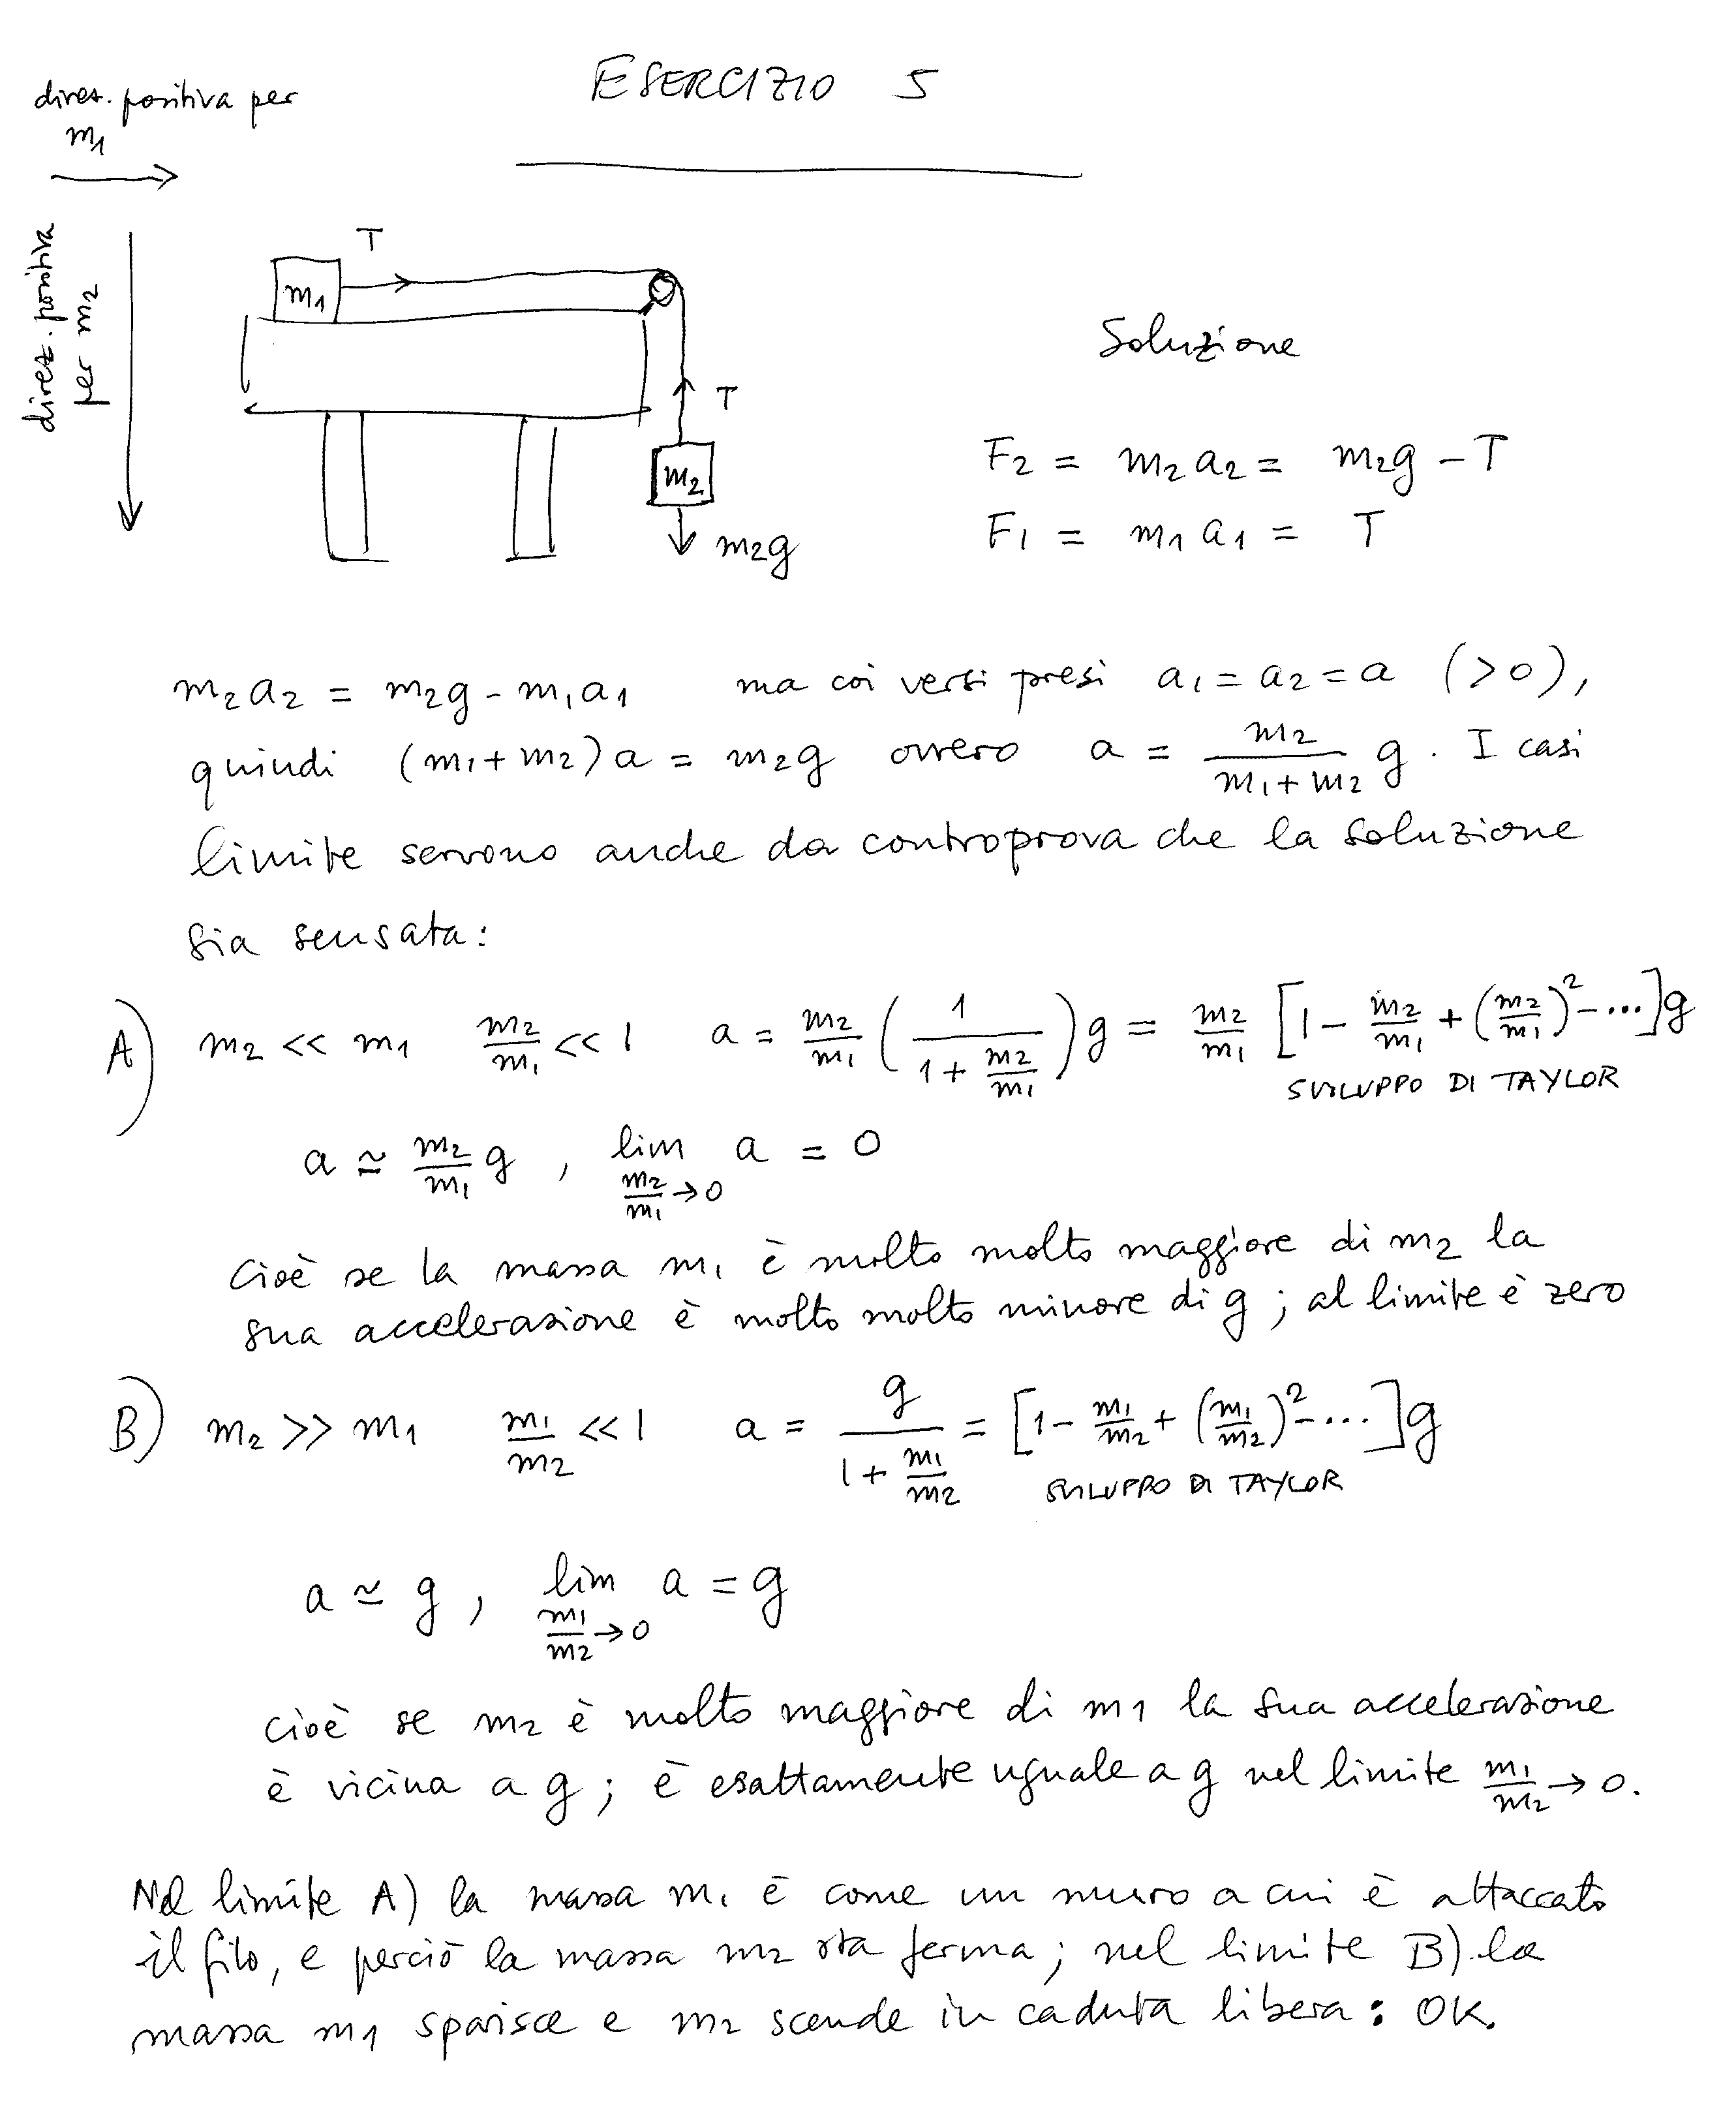 ESERCIZIO 5
direz. positiva per
m1
direz. positiva
per m2
T
m1
T
m2
m2g
Soluzione
F2 = m2 a2 = m2g - T
F1 = m1 a1 = T
m2 a2 = m2g - m1 a1 ma coi versi presi a1 = a2 = a (>0),
quindi (m1 + m2) a = m2g ovvero a = m2/(m1 + m2) g. I casi
limite servono anche da controprova che la soluzione
sia sensata:
A) m2 << m1 m2/m1 << 1 a = m2/m1 (1/(1 + m2/m1)) g = m2/m1 [1 - m2/m1 + (m2/m1)² - ...] g
SVILUPPO DI TAYLOR
a ≃ m2/m1 g , lim m2/m1 → 0 a = 0
cioè se la massa m1 è molto molto maggiore di m2 la
sua accelerazione è molto molto minore di g ; al limite è zero
B) m2 >> m1 m1/m2 << 1 a = g/(1 + m1/m2) = [1 - m1/m2 + (m1/m2)² - ...] g
SVILUPPO DI TAYLOR
a ≃ g , lim m1/m2 → 0 a = g
cioè se m2 è molto maggiore di m1 la sua accelerazione
è vicina a g ; è esattamente uguale a g nel limite m1/m2 → 0.
Nel limite A) la massa m1 è come un muro a cui è attaccato
il filo, e perciò la massa m2 sta ferma ; nel limite B) la
massa m1 sparisce e m2 scende in caduta libera : OK.